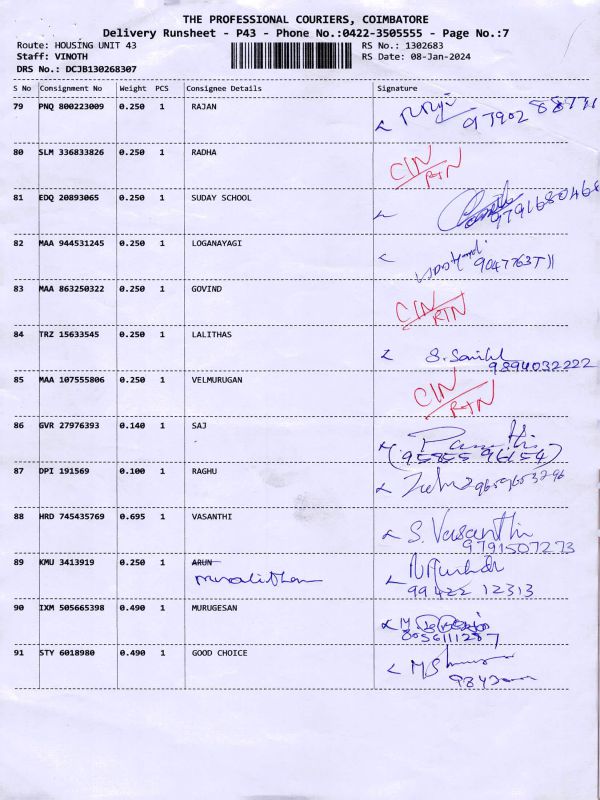 THE PROFESSIONAL COURIERS, COIMBATORE
Delivery Runsheet - P43 - Phone No.:0422-3505555 - Page No.:7
Route: HOUSING UNIT 43 RS No.: 1302683
Staff: VINOTH RS Date: 08-Jan-2024
DRS No.: DCJB130268307
S No Consignment No Weight PCS Consignee Details Signature
79 PNQ 800223009 0.250 1 RAJAN
80 SLM 336833826 0.250 1 RADHA CIN
RTN
81 EDQ 20893065 0.250 1 SUDAY SCHOOL
9791680468
82 MAA 944531245 0.250 1 LOGANAYAGI
83 MAA 863250322 0.250 1 GOVIND CIN
RTN
84 TRZ 15633545 0.250 1 LALITHAS
9894032222
85 MAA 107555806 0.250 1 VELMURUGAN CIN
RTN
86 GVR 27976393 0.140 1 SAJ
(95855 96154)
87 DPI 191569 0.100 1 RAGHU
88 HRD 745435769 0.695 1 VASANTHI S. Vasanthi
9791507273
89 KMU 3413919 0.250 1 ARUN
Muralidharan
99422 12313
90 IXM 505665398 0.490 1 MURUGESAN
91 STY 6018980 0.490 1 GOOD CHOICE